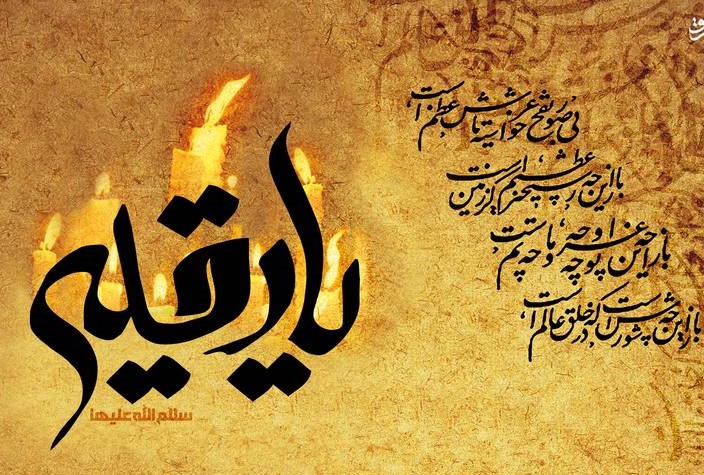 بی نفخ صور خواسته تا عرش اعظم است
باز این چه رستخیز عظیم است کز زمین
باز این چه نوحه و چه عزا و چه ماتم است
باز این چه شورش است که در خلق عالم است
یا رقیه
سلام الله علیها